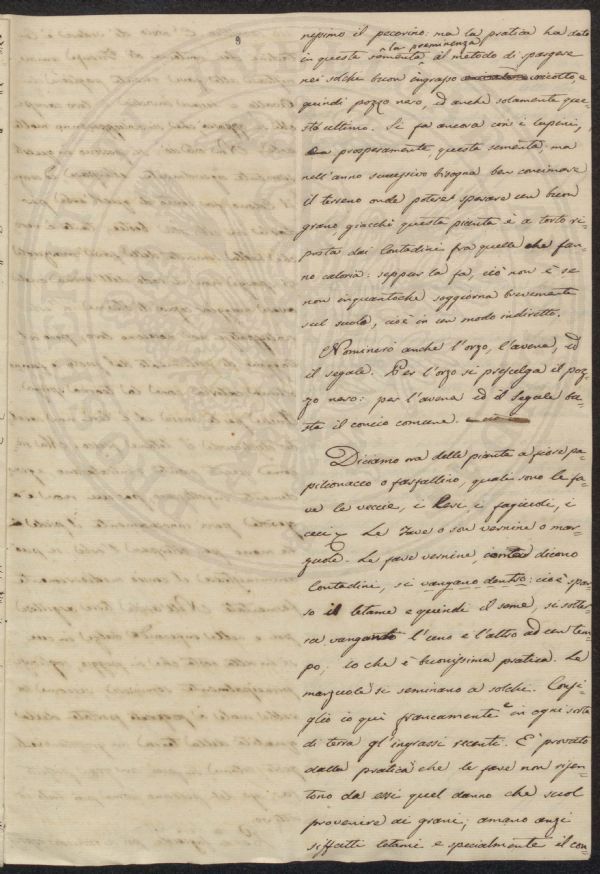 nepimo il pecorino: ma la pratica ha dato
in questa sementa la preeminenza al metodo di spargere
nei solchi buon ingrasso concotto, e
quindi pozzo nero, ed anche solamente que-
st'ultimo. Si fa ancora con i lupini,
prosperamente, questa sementa; ma
nell'anno successivo bisogna ben concimare
il terreno onde potere sperare un buon
grano giacchè questa pianta è a torto ri-
posta dai Contadini fra quelle che fan-
no caloria: seppur la fa, ciò non è se
non inquantochè soggiorna brevemente
sul suolo, cioè in un modo indiretto.
Nominerò anche l'orzo, l'avena, ed
il segale. Per l'orzo si prescelga il poz-
zo nero: per l'avena ed il segale ba-
sta il concio comune.
Diciamo ora delle piante a fiore pa-
pilionacco o farfallino, quali sono le fa-
ve le veccie, i ceci, i fagiuoli, i
ceci. Le Fave o son vernine o mar-
zuole. Le fave vernine, dicono
Contadini, si vangano dentro: cioè spar-
so il letame e quindi il seme, si sotter-
ra vangando l'uno e l'altro ad un tem-
po; lo che è buonissima pratica. Le
marzuole si seminano a solchi. Consi-
glio io qui francamente e in ogni sorta
di terra gl'ingrassi recenti. È provato
dalla pratica che le fave non risen-
tono da essi quel danno che suol
provenire ai grani; amano anzi
siffatti letami e specialmente il con-